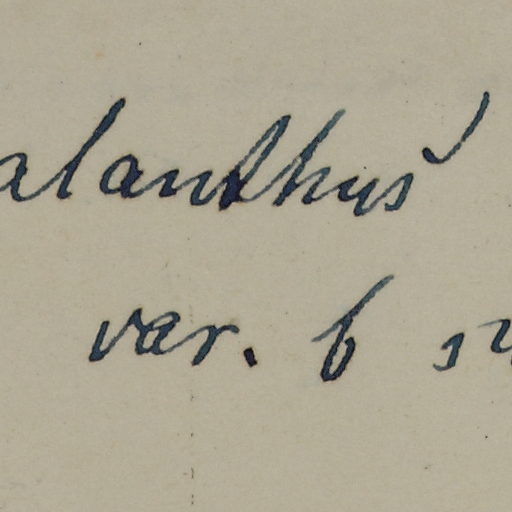 alanthus
var. b